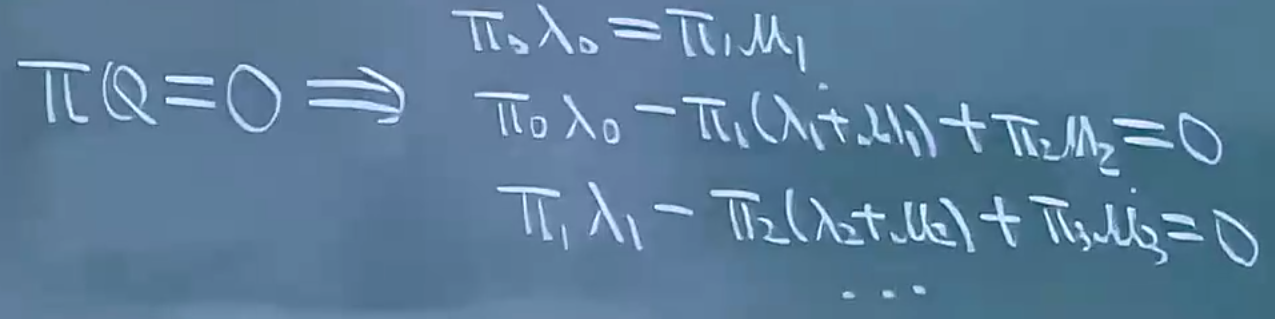 πQ=0 ⇒ π₀λ₀=π₁μ₁
π₀λ₀-π₁(λ₁+μ₁)+π₂μ₂=0
π₁λ₁-π₂(λ₂+μ₂)+π₃μ₃=0
...